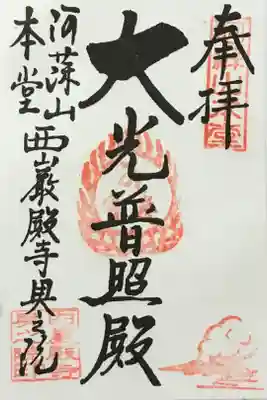 奉拝
大光普照殿
阿蘓山
本堂
西巌殿寺奥之院